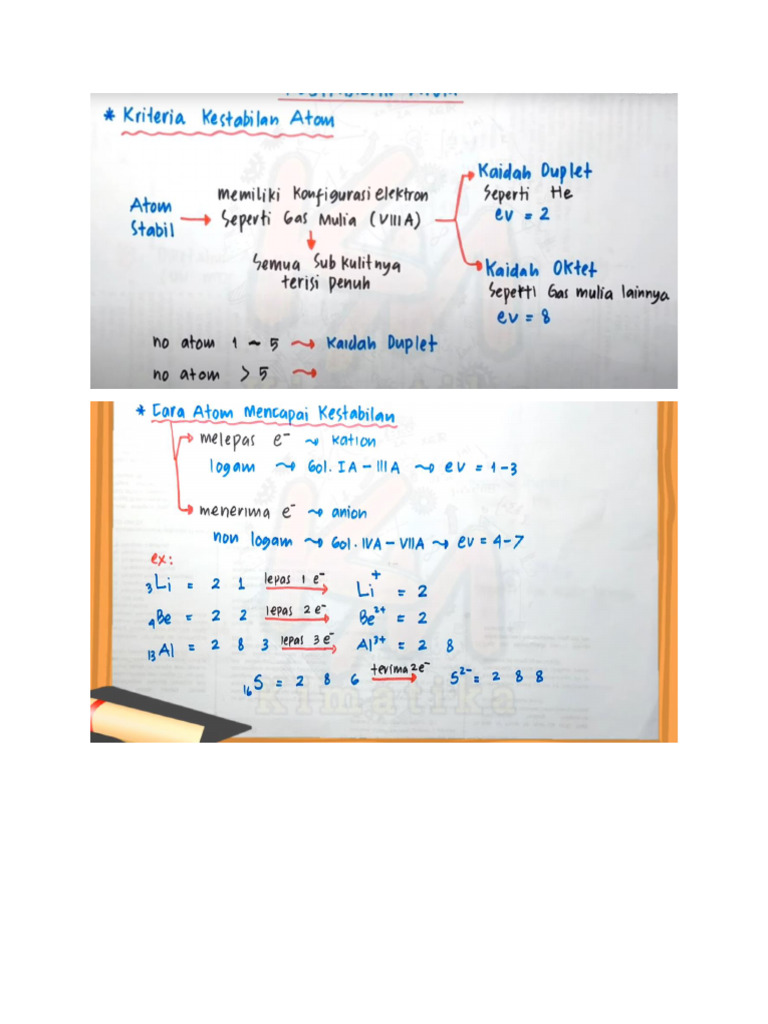 * Kriteria Kestabilan Atom
Atom Stabil → memiliki konfigurasi elektron Seperti Gas Mulia (VIIIA)
↓
Semua Subkulitnya terisi penuh
Kaidah Duplet
Seperti He
ev = 2
Kaidah Oktet
Seperti Gas mulia lainnya
ev = 8
no atom 1 ~ 5 → Kaidah Duplet
no atom > 5 →
* Cara Atom Mencapai Kestabilan
melepas e⁻ → kation
logam → Gol. IA - IIIA → ev = 1-3
menerima e⁻ → anion
non logam → Gol. IVA - VIIA → ev = 4-7
ex:
₃Li = 2 1 lepas 1 e⁻ → Li⁺ = 2
₄Be = 2 2 lepas 2 e⁻ → Be²⁺ = 2
₁₃Al = 2 8 3 lepas 3 e⁻ → Al³⁺ = 2 8
₁₆S = 2 8 6 terima 2 e⁻ → S²⁻ = 2 8 8
kimatika